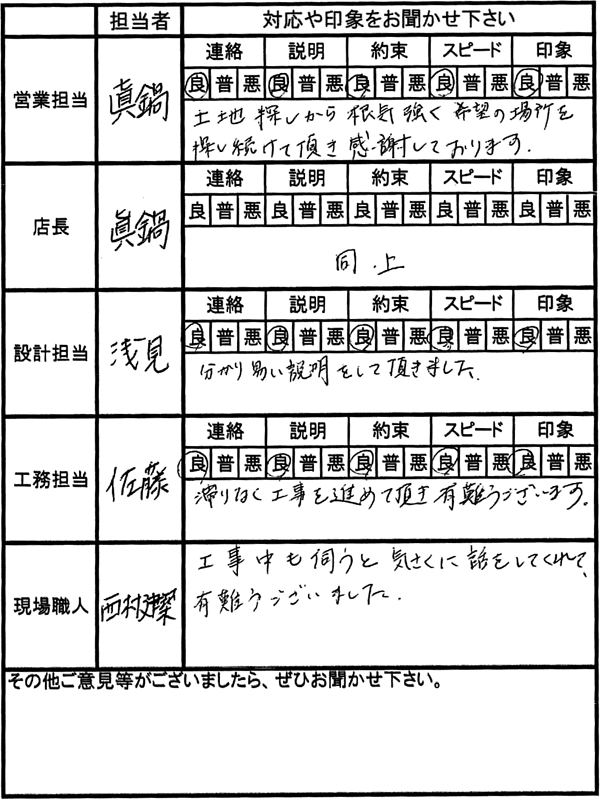 担当者 対応や印象をお聞かせ下さい
営業担当 真鍋
連絡 説明 約束 スピード 印象
良 普 悪 良 普 悪 良 普 悪 良 普 悪 良 普 悪
土地探しから根気強く希望の場所を
探し続けて頂き感謝しております.
店長 眞鍋
連絡 説明 約束 スピード 印象
良 普 悪 良 普 悪 良 普 悪 良 普 悪 良 普 悪
同.上
設計担当 浅見
連絡 説明 約束 スピード 印象
良 普 悪 良 普 悪 良 普 悪 良 普 悪 良 普 悪
分かり易い説明をして頂きました.
工務担当 佐藤
連絡 説明 約束 スピード 印象
良 普 悪 良 普 悪 良 普 悪 良 普 悪 良 普 悪
滞りなく工事を進めて頂き有難うございます.
現場職人 西村建築
工事中も伺うと気さくに話をしてくれて、
有難うございました.
その他ご意見等がございましたら、ぜひお聞かせ下さい。